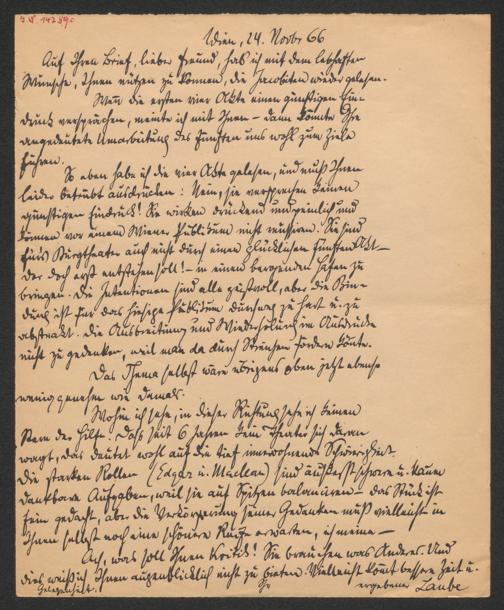 I.N. 14289c
Wien, 24. Novbr 66
Auf Ihren Brief, lieber Freund, hab ich mit dem lebhaften
Wunsche, Ihnen nützen zu können, die Jacobiten wieder gelesen.
Wenn die ersten vier Akte einen günstigen Ein-
druck versprächen, meinte ich mit Ihnen – dann könnte Ihre
angedeutete Umarbeitung des fünften uns wohl zum Ziele
führen.
So eben habe ich die vier Akte gelesen, und muß Ihnen
leider betrübt ausdrücken: Nein, sie versprechen keinen
günstigen Eindruck! Sie wirken drückend und peinlich und
können vor einem Wiener Publikum nicht reussiren. Sie sind
fürs Burgtheater auch nicht durch einen glücklichen fünften Akt –
der doch erst entstehen soll! – in einen bergenden Hafen zu
bringen. Die Intentionen sind alle geistvoll, aber die Bin-
dung ist für das hiesige Publikum durchweg zu hart u. zu
abstrakt. Die Ausbreitung und Wiederholung im Ausdrucke
nicht zu gedenken, weil man da durch Streichen fördern könnte.
Das Thema selbst wäre übrigens eben jetzt ebenso
wenig genehm wie damals.
Wohin ich sehe, in dieser Richtung sehe ich keinen
Stern der Hilfe. Daß seit 6 Jahren kein Theater sich daran
wagt, das deutet wohl auf die tief innewohnende Schwierigkeit.
Die starken Rollen (Edgar u. Maclean) sind äußerst schwere u. kaum
dankbare Aufgaben, weil sie auf Spitzen balanciren – das Stück ist
fein gedacht, aber die Verkörperung seiner Gedanken muß vielleicht in
Ihnen selbst noch eine schönere Reife erwarten, ich meine –
Ach, was soll Ihnen Kritik! Sie brauchen was Anderes. Und
dies weiß ich Ihnen augenblicklich nicht zu bieten. Vielleicht kömmt bessere Zeit u.
Gelegenheit. Ihr ergebener Laube